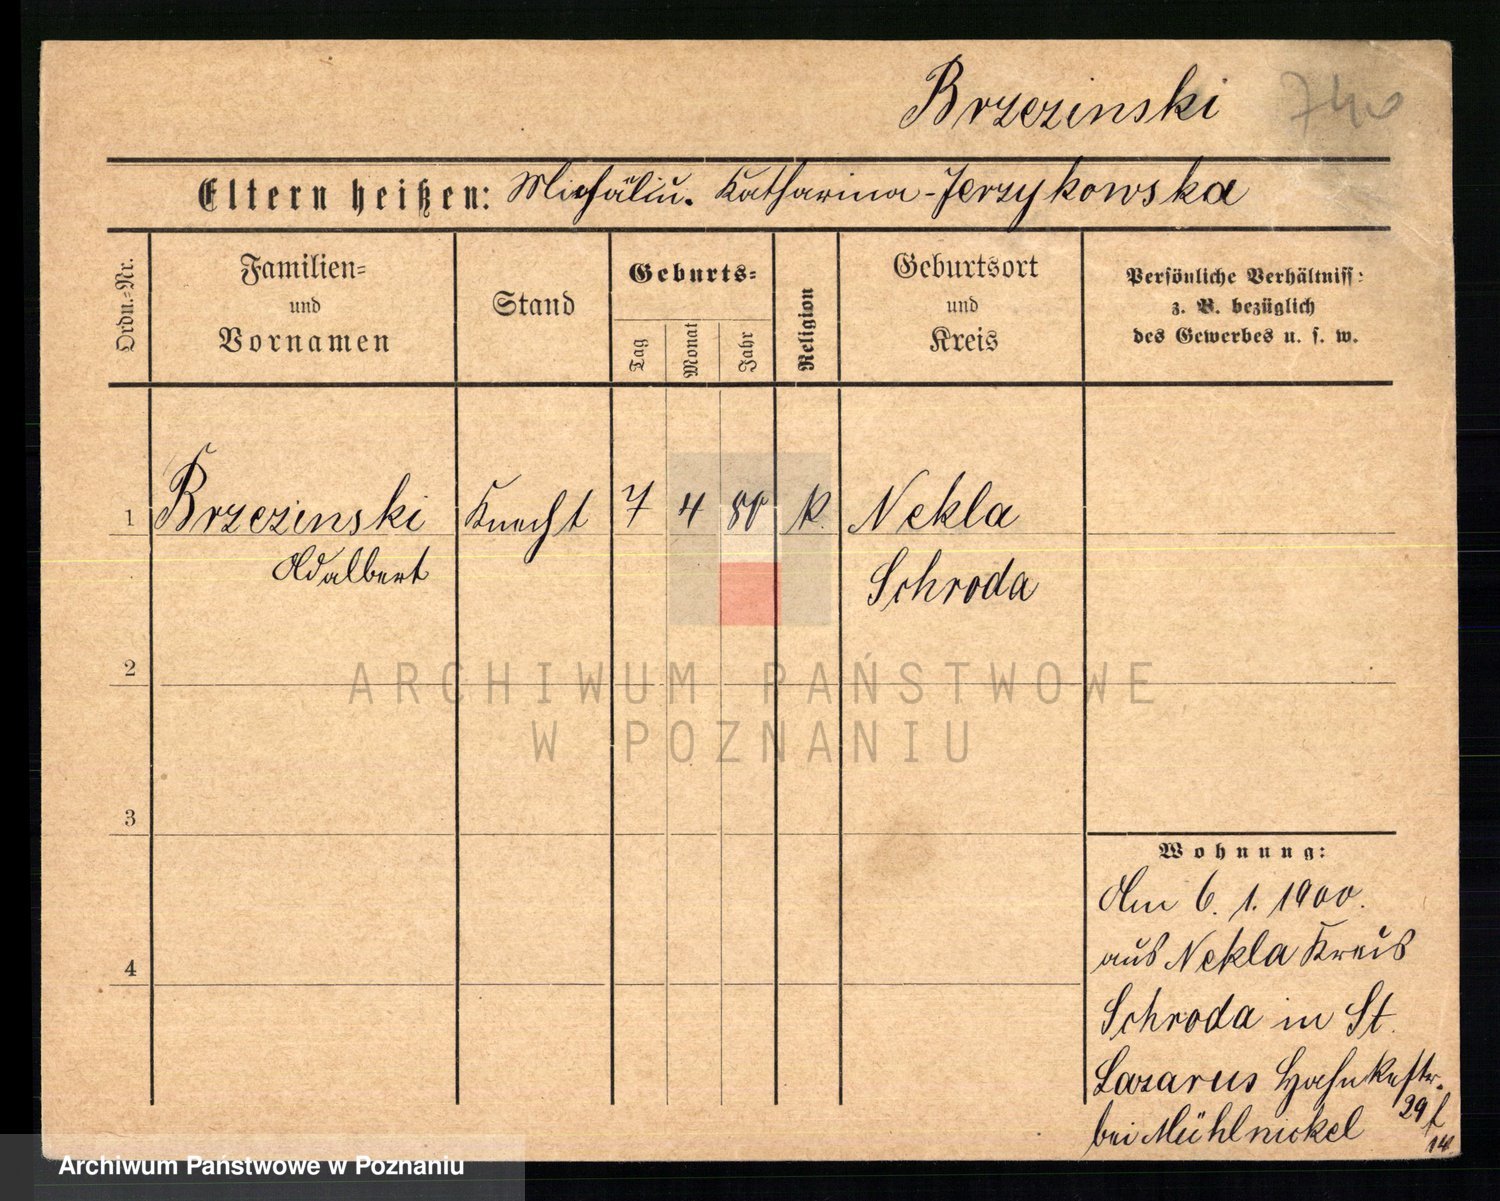 Brzezinski 740
Eltern heißen: Michál u. Katharina-Jerzykowska
Ordn.-Nr.
Familien-
und
Vornamen
Stand
Geburts-
Tag
Monat
Jahr
Religion
Geburtsort
und
Kreis
Persönliche Verhältniss:
z. B. bezüglich
des Gewerbes u. s. w.
1 Brzezinski Knecht 7 4 80 k. Nekla
Adalbert Schroda
2
3
4
Wohnung:
Am 6. 1. 1900.
aus Nekla Kreis
Schroda in St.
Lazarus Hahnkestr.
bei Mühlnickel 29
14
ARCHIWUM PAŃSTWOWE
W POZNANIU
Archiwum Państwowe w Poznaniu